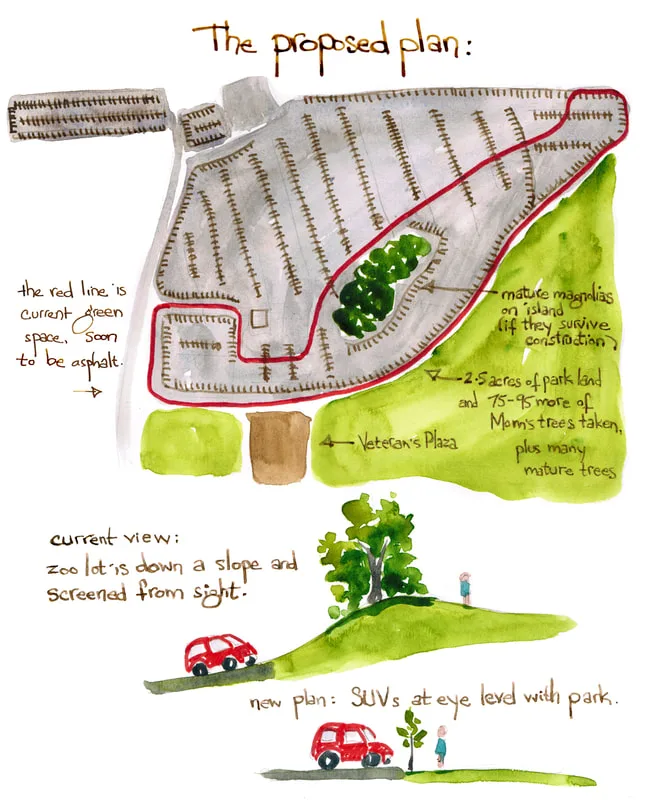 The proposed plan:
the red line is
current green
space. Soon
to be asphalt.
mature magnolias
on island
(if they survive
construction)
2.5 acres of park land
and 75-95 more of
Mom's trees taken,
plus many
mature trees
Veteran's Plaza
current view:
zoo lot is down a slope and
screened from sight.
new plan: SUVs at eye level with park.